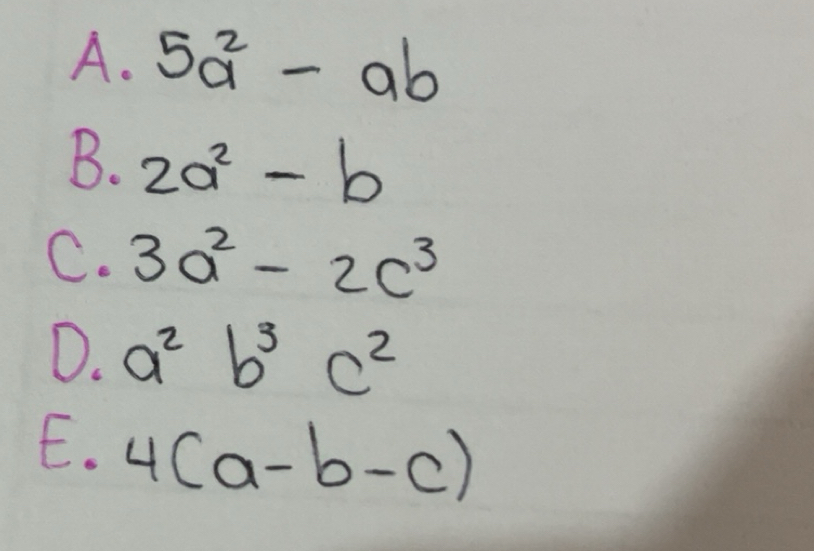 A. 5a² - ab
B. 2a² - b
C. 3a² - 2c³
D. a² b³ c²
E. 4(a-b-c)